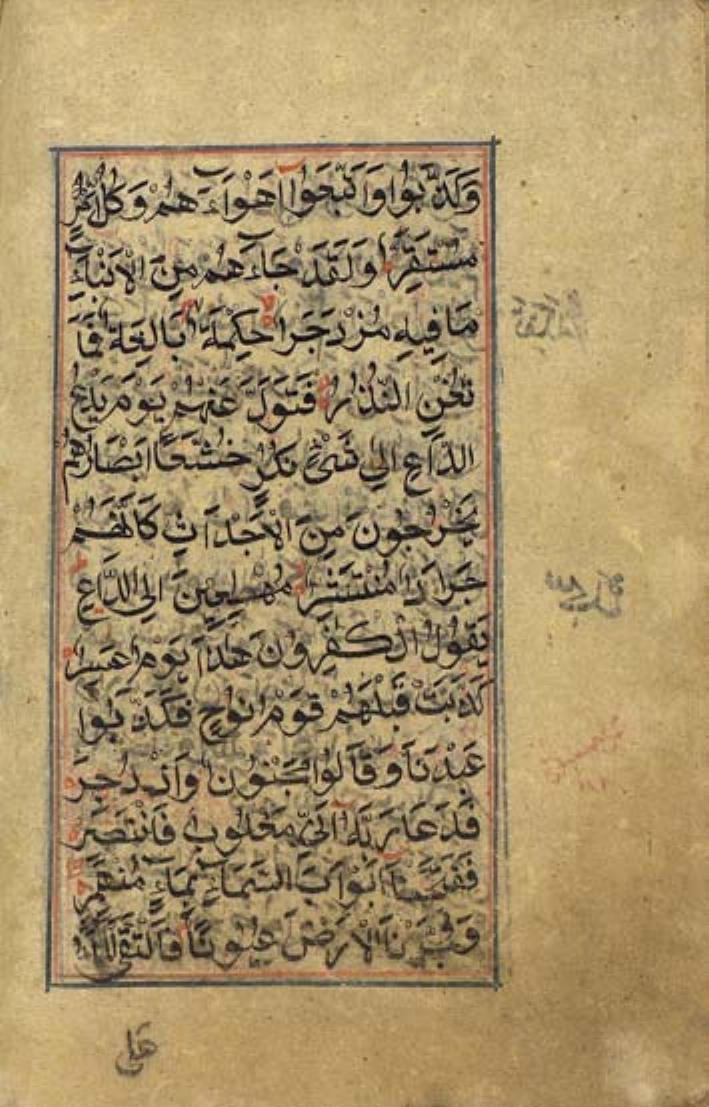 وَكَذَّبُوا وَاتَّبَعُوا أَهْوَاءَهُمْ وَكُلُّ أَمْرٍ
مُسْتَقِرٌّ وَلَقَدْ جَاءَهُمْ مِنَ الْأَنْبَاءِ
مَا فِيهِ مُزْدَجَرٌ حِكْمَةٌ بَالِغَةٌ فَمَا
تُغْنِ النُّذُرُ فَتَوَلَّ عَنْهُمْ يَوْمَ يَدْعُ
الدَّاعِ إِلَى شَيْءٍ نُكُرٍ خُشَّعًا أَبْصَارُهُمْ
يَخْرُجُونَ مِنَ الْأَجْدَاثِ كَأَنَّهُمْ
جَرَادٌ مُنْتَشِرٌ مُهْطِعِينَ إِلَى الدَّاعِ
يَقُولُ الْكٰفِرُونَ هٰذَا يَوْمٌ عَسِرٌ
كَذَّبَتْ قَبْلَهُمْ قَوْمُ نُوحٍ فَكَذَّبُوا
عَبْدَنَا وَقَالُوا مَجْنُونٌ وَازْدُجِرَ
فَدَعَا رَبَّهُ أَنِّي مَغْلُوبٌ فَانْتَصِرْ
فَفَتَحْنَا أَبْوَابَ السَّمَاءِ بِمَاءٍ مُنْهَمِرٍ
وَفَجَّرْنَا الْأَرْضَ عُيُونًا فَالْتَقَى الْمَاءُ
على